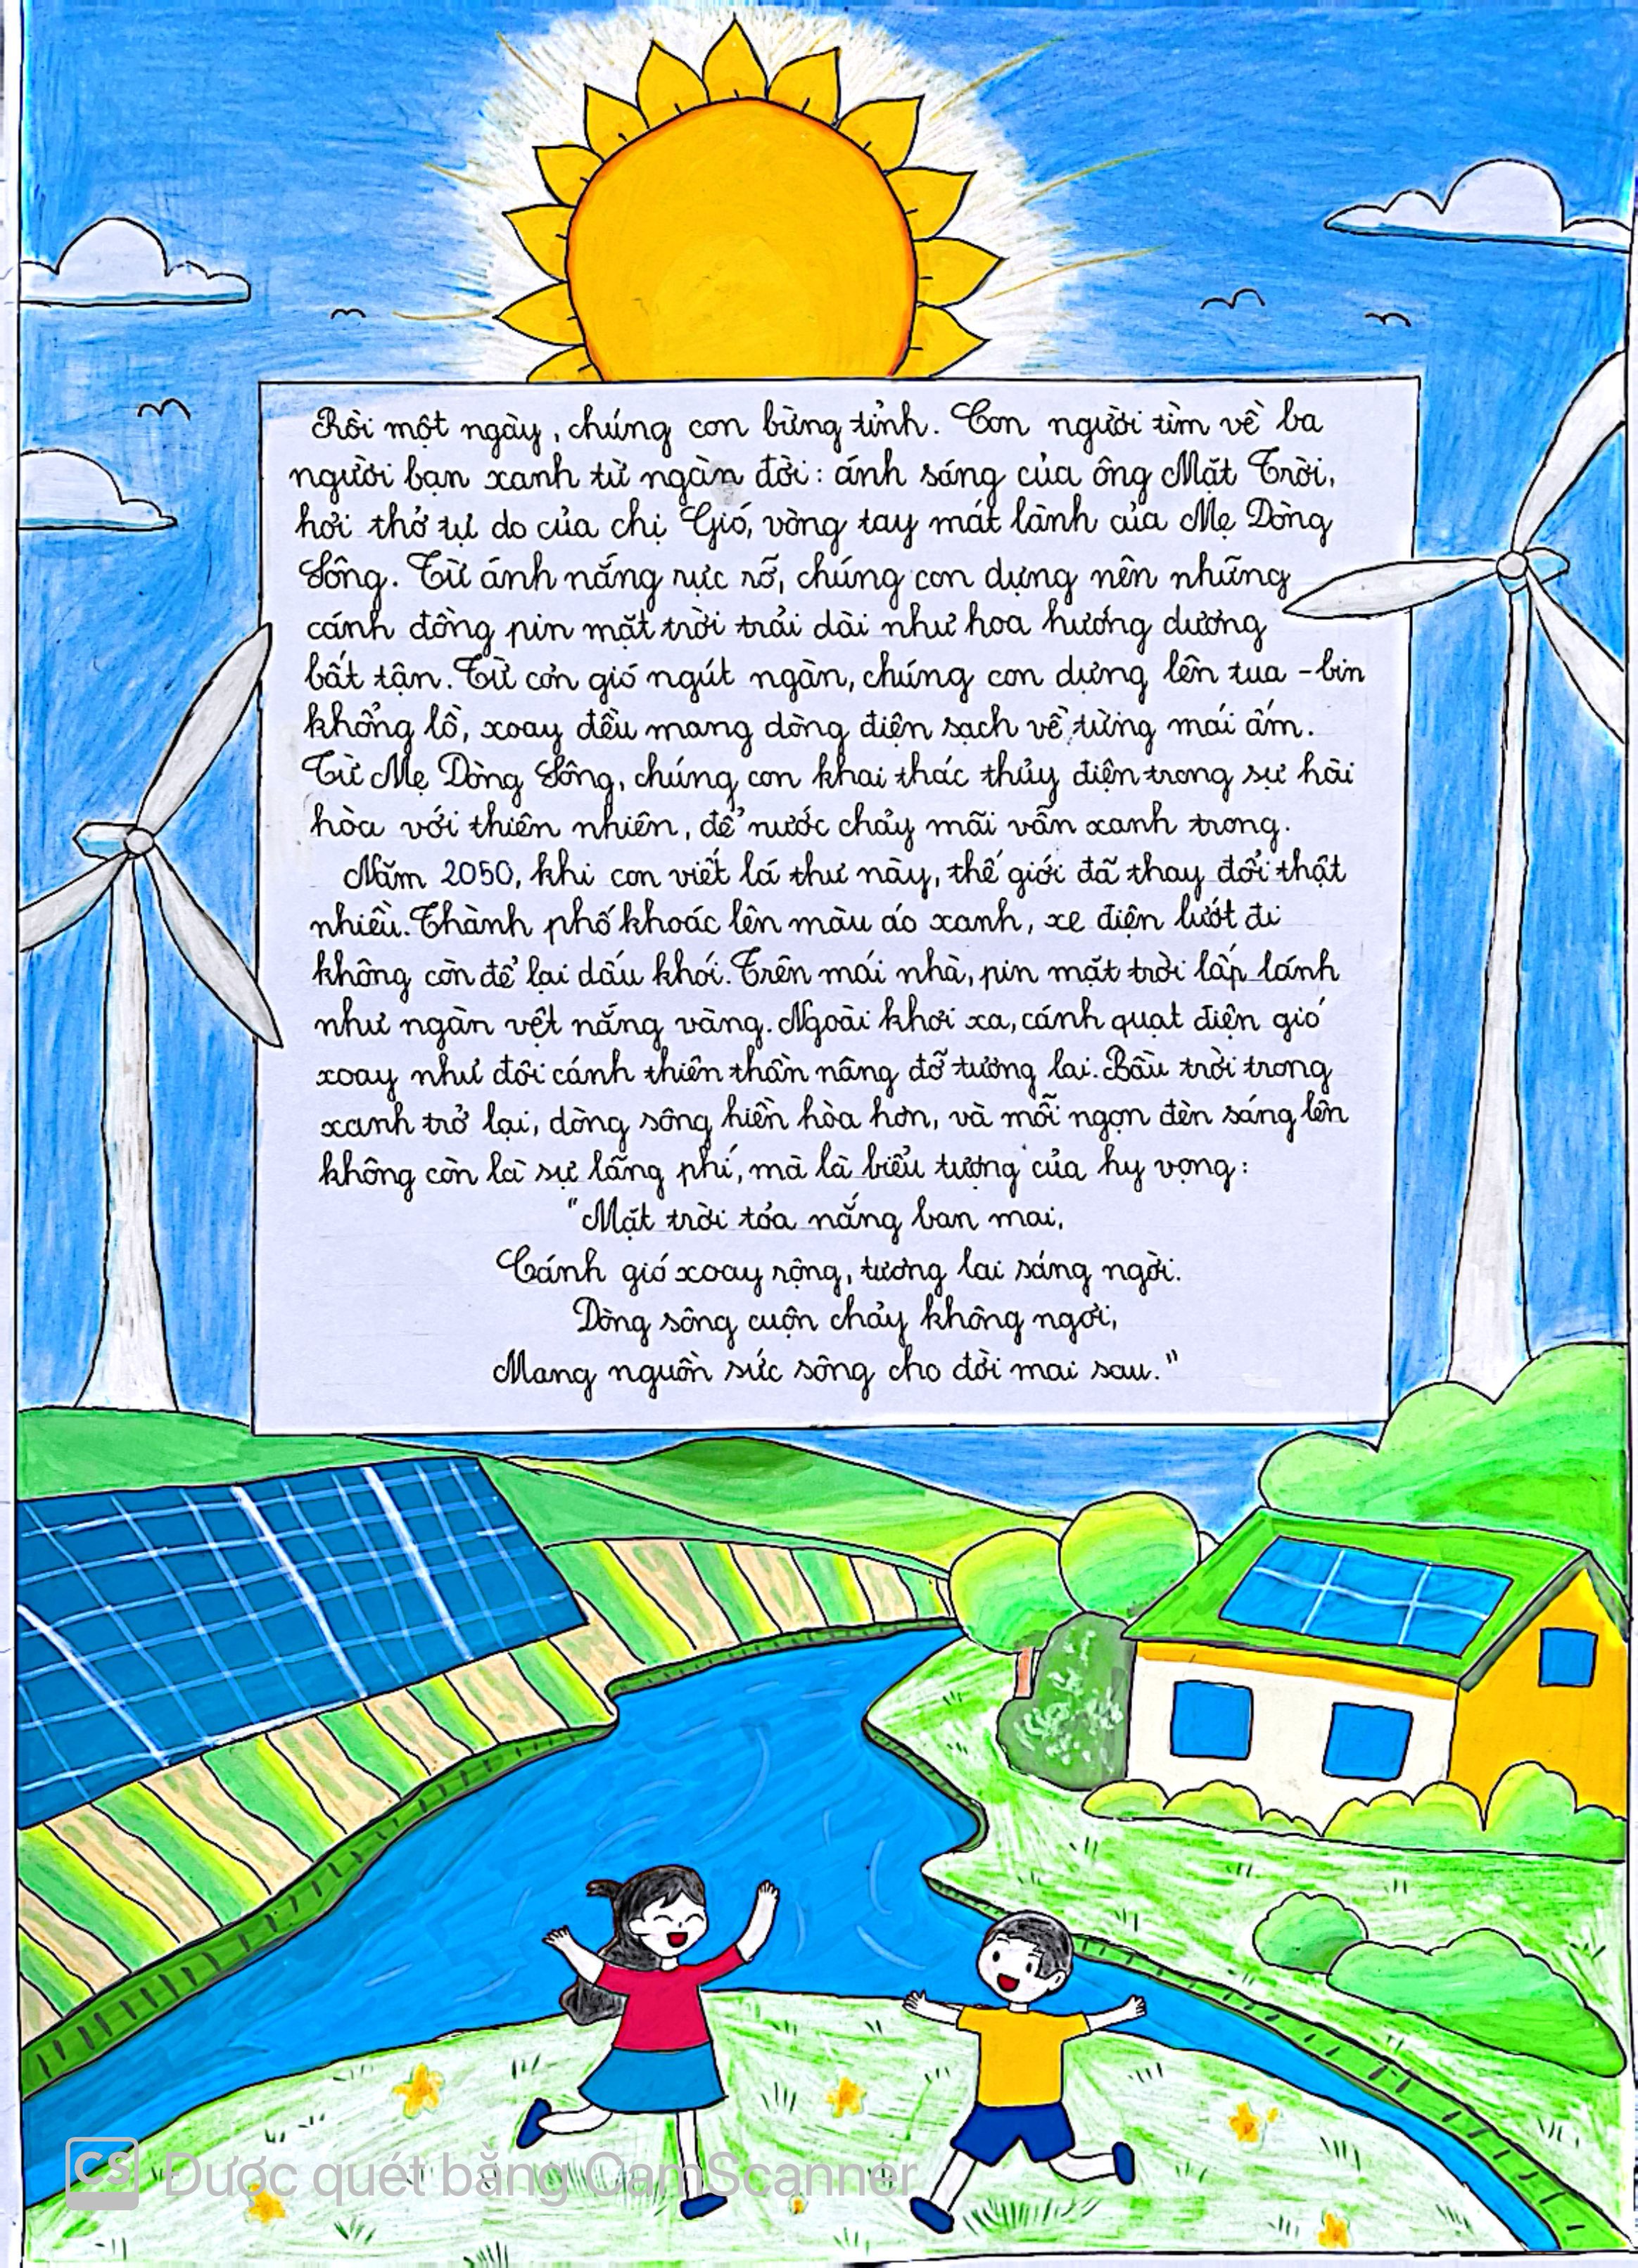 Rồi một ngày, chúng con bừng tỉnh. Con người tìm về ba
người bạn xanh từ ngàn đời: ánh sáng của ông Mặt Trời,
hơi thở tự do của chị Gió, vòng tay mát lành của Mẹ Dòng
Sông. Từ ánh nắng rực rỡ, chúng con dựng nên những
cánh đồng pin mặt trời trải dài như hoa hướng dương
bất tận. Từ cơn gió ngút ngàn, chúng con dựng lên tua-bin
khổng lồ, xoay đều mang dòng điện sạch về từng mái ấm.
Từ Mẹ Dòng Sông, chúng con khai thác thủy điện trong sự hài
hòa với thiên nhiên, để nước chảy mãi vẫn xanh trong.
Năm 2050, khi con viết lá thư này, thế giới đã thay đổi thật
nhiều. Thành phố khoác lên màu áo xanh, xe điện lướt đi
không còn để lại dấu khói. Trên mái nhà, pin mặt trời lấp lánh
như ngàn vệt nắng vàng. Ngoài khơi xa, cánh quạt điện gió
xoay như đôi cánh thiên thần nâng đỡ tương lai. Bầu trời trong
xanh trở lại, dòng sông hiền hòa hơn, và mỗi ngọn đèn sáng lên
không còn là sự lãng phí, mà là biểu tượng của hy vọng:
"Mặt trời tỏa nắng ban mai,
Cánh gió xoay rộng, tương lai sáng ngời.
Dòng sông cuộn chảy không ngơi,
Mang nguồn sức sông cho đời mai sau."
CS Được quét bằng CamScanner